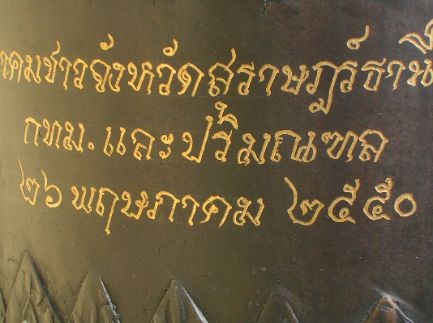 าคมชาวจังหวัดสุราษฎร์ธานี
กทม. และปริมณฑล
๒๖ พฤษภาคม ๒๕๕๐